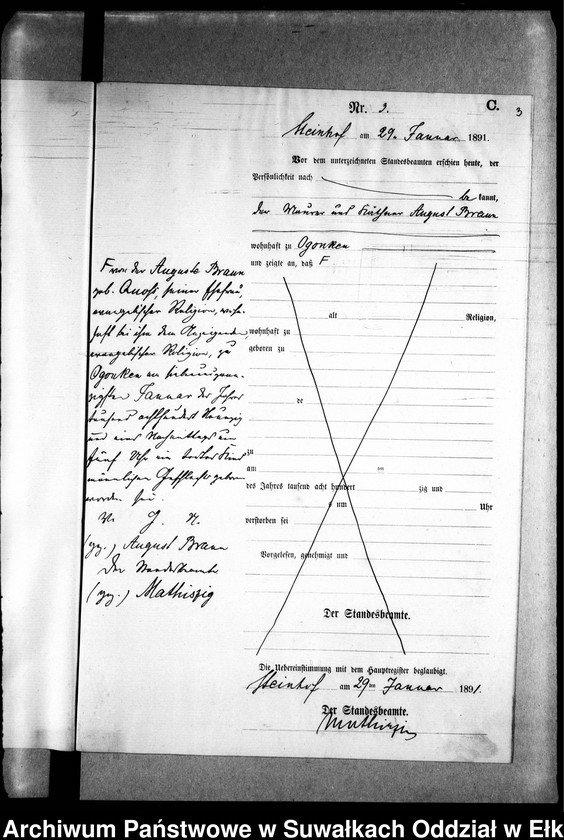 Nr. 3.
C.
3
Steinhof am 29. Januar 1891.
Vor dem unterzeichneten Standesbeamten erschien heute, der
Persönlichkeit nach
be kannt,
der Maurer und Käthner August Braun
wohnhaft zu Ogonken
und zeigte an, daß F
F von der Auguste Braun
geb. seiner Ehefrau,
evangelischer Religion, wohn-
haft bei ihm dem Anzeigenden,
evangelischer Religion, zu
Ogonken am siebenundzwan-
zigsten Januar des Jahres
tausend achthundert Neunzig
und eins Nachmittags um
fünf Uhr ein todtes Kind
männlichen Geschlechts geboren
worden sei.
V. G. U.
(gez.) August Braun
Der Standesbeamte
(gez.) Mathiszig
alt
Religion,
wohnhaft zu
geboren zu
de
zu
am ten
des Jahres tausend acht hundert zig und
um Uhr
verstorben sei
Vorgelesen, genehmigt und
Der Standesbeamte.
Die Uebereinstimmung mit dem Hauptregister beglaubigt.
Steinhof am 29ten Januar 1891.
Der Standesbeamte.
Mathiszig
Archiwum Państwowe w Suwałkach Oddział w Ełk